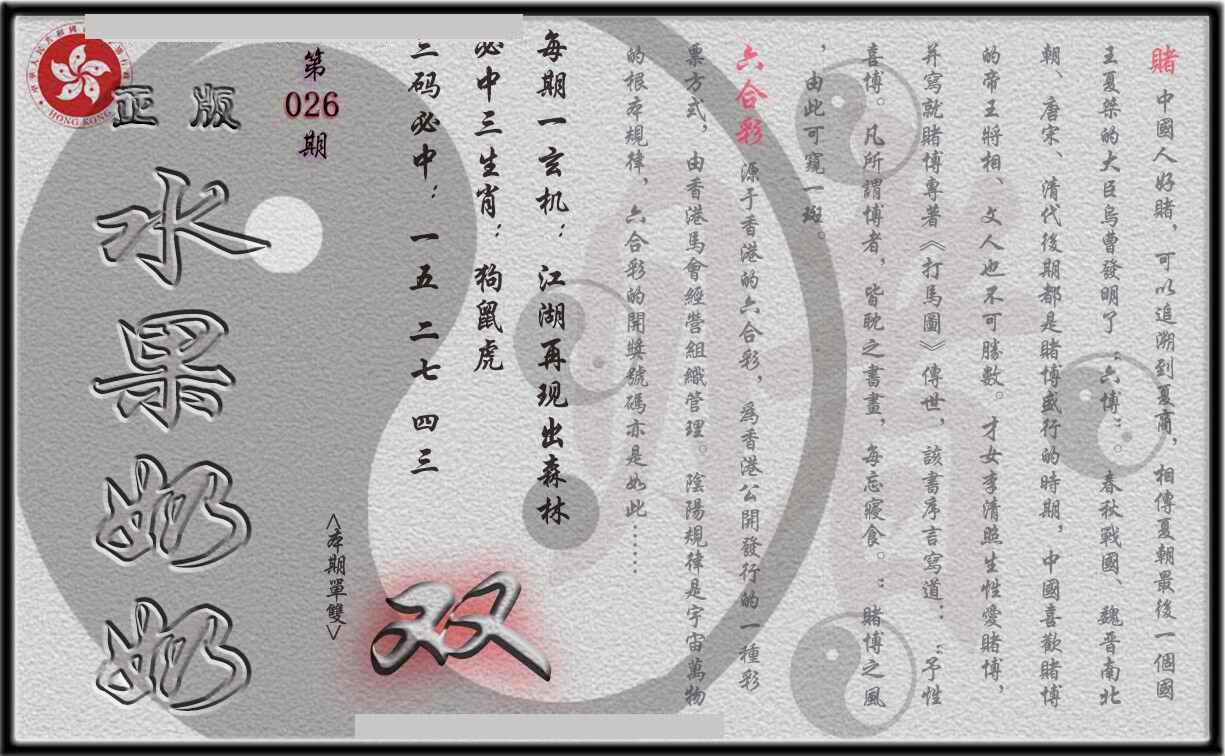 賭 中國人好賭，可以追溯到夏商，相傳夏朝最後一個國
王夏桀的大臣烏曹發明了“六博”。春秋戰國、魏晋南北
朝、唐宋、清代後期都是賭博盛行的時期，中國喜歡賭博
的帝王將相、文人也不可勝數。才女李清照生性愛賭博，
并寫就賭博專著《打馬圖》傳世，該書序言寫道：“予性
喜博。凡所謂博者，皆耽之書畫，每忘寢食。：賭博之風
，由此可窺一斑。
六合彩 源于香港的六合彩，為香港公開發行的一種彩
票方式，由香港馬會經營組織管理。陰陽規律是宇宙萬物
的根本規律，六合彩的開獎號碼亦是如此……
每期一玄机：江湖再现出森林
必中三生肖：狗鼠虎
三码必中：一五 二七 四三
双
<本期單雙>
第
026
期
正版
水果奶奶
HONG KONG